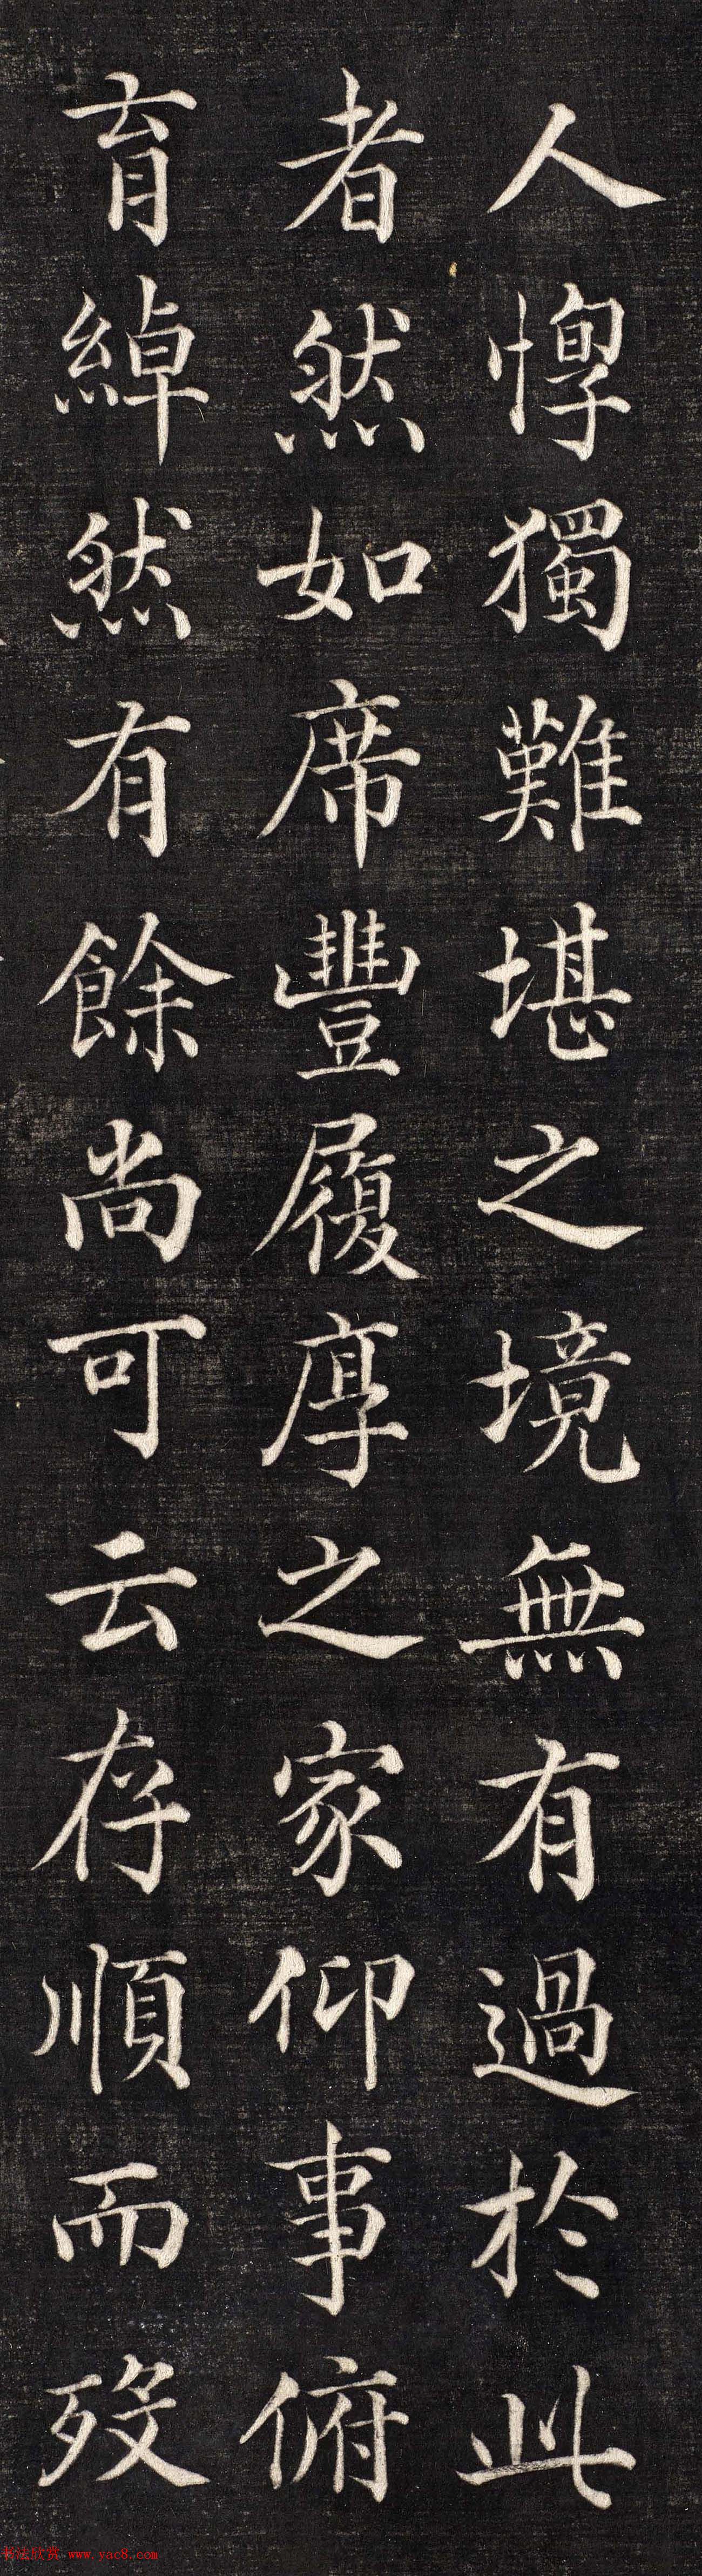 人惸獨難堪之境無有過於此
者然如席豐履厚之家仰事俯
育綽然有餘尚可云存順而歿
书法欣赏 www.yac8.com